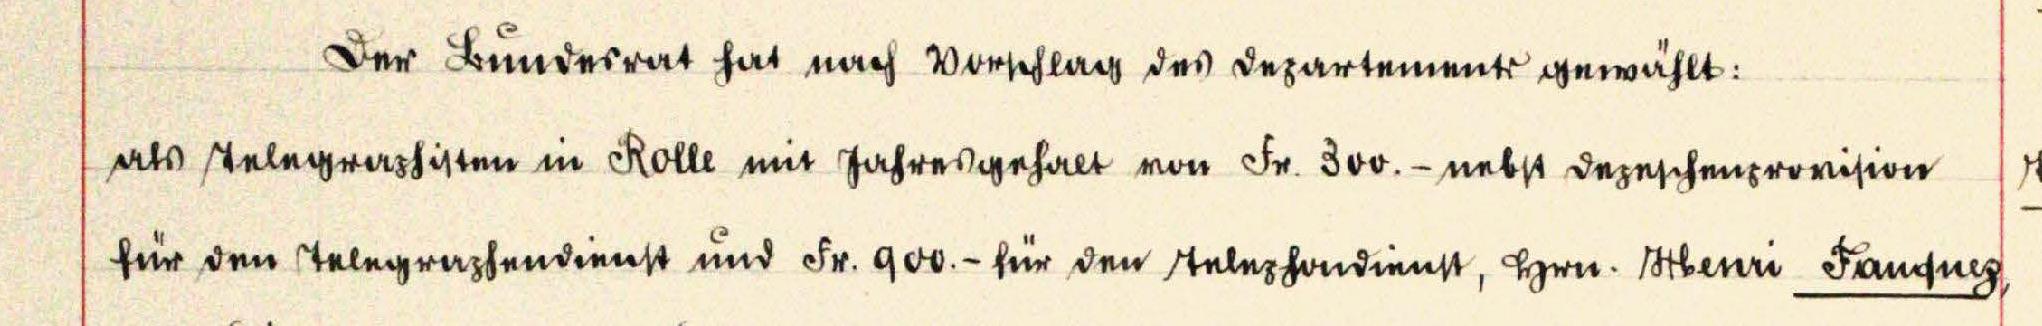 Der Bundesrat hat nach Vorschlag des Departements gewählt:
als Telegraphisten in Rolle mit Jahresgehalt von Fr. 300.- nebst Depeschenprovision
für den Telegraphendienst und Fr. 900.- für den Telephondienst, Hrn. Henri Fauquez,